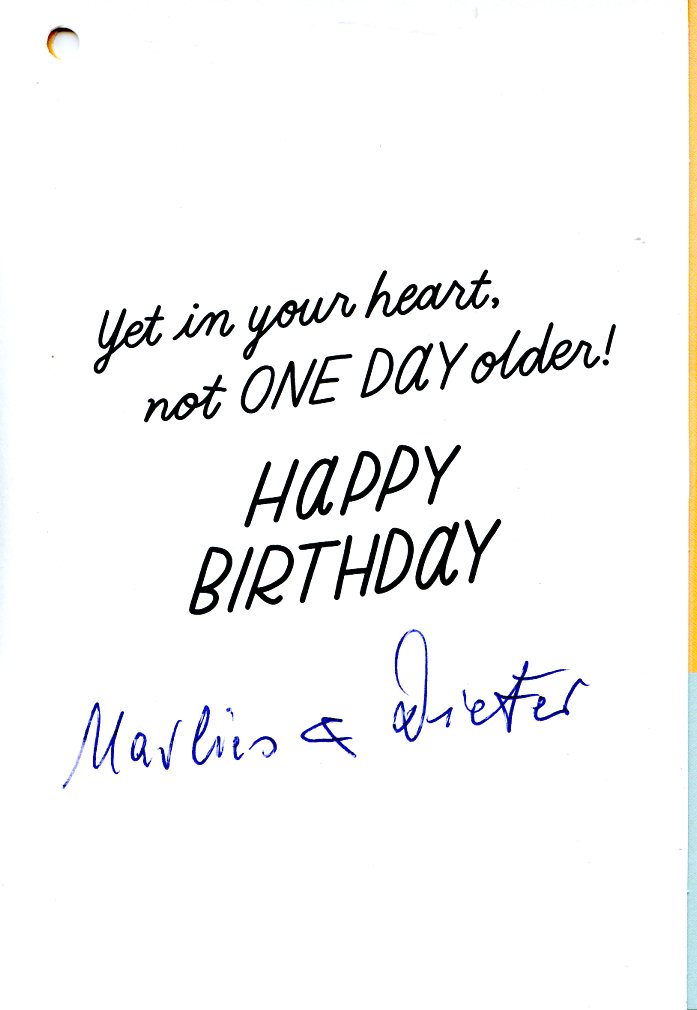 Yet in your heart,
not ONE DAY older!
HAPPY
BIRTHDAY
Marlies & Dieter